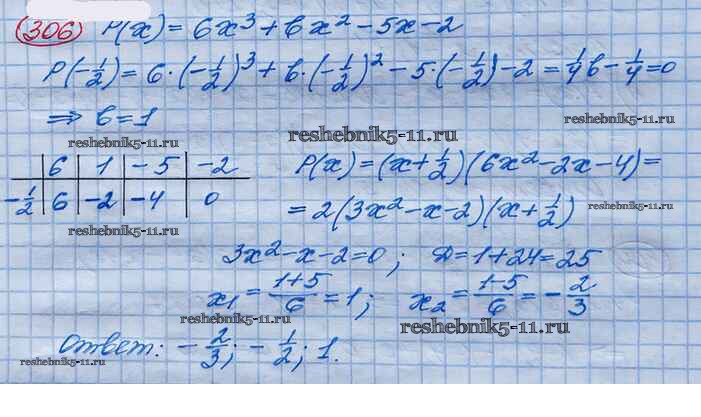 (306) P(x) = 6x³ + bx² - 5x - 2
P(-1/2) = 6·(-1/2)³ + b·(-1/2)² - 5·(-1/2) - 2 = 1/4 b - 1/4 = 0
⇒ b = 1
reshebnik5-11.ru
reshebnik5-11.ru
6 | 1 | -5 | -2
-1/2 | 6 | -2 | -4 | 0
P(x) = (x + 1/2)(6x² - 2x - 4) =
= 2(3x² - x - 2)(x + 1/2)
reshebnik5-11.ru
reshebnik5-11.ru
3x² - x - 2 = 0; D = 1 + 24 = 25
x₁ = (1+5)/6 = 1; x₂ = (1-5)/6 = -2/3
reshebnik5-11.ru
reshebnik5-11.ru
Ответ: -2/3; -1/2; 1.
reshebnik5-11.ru